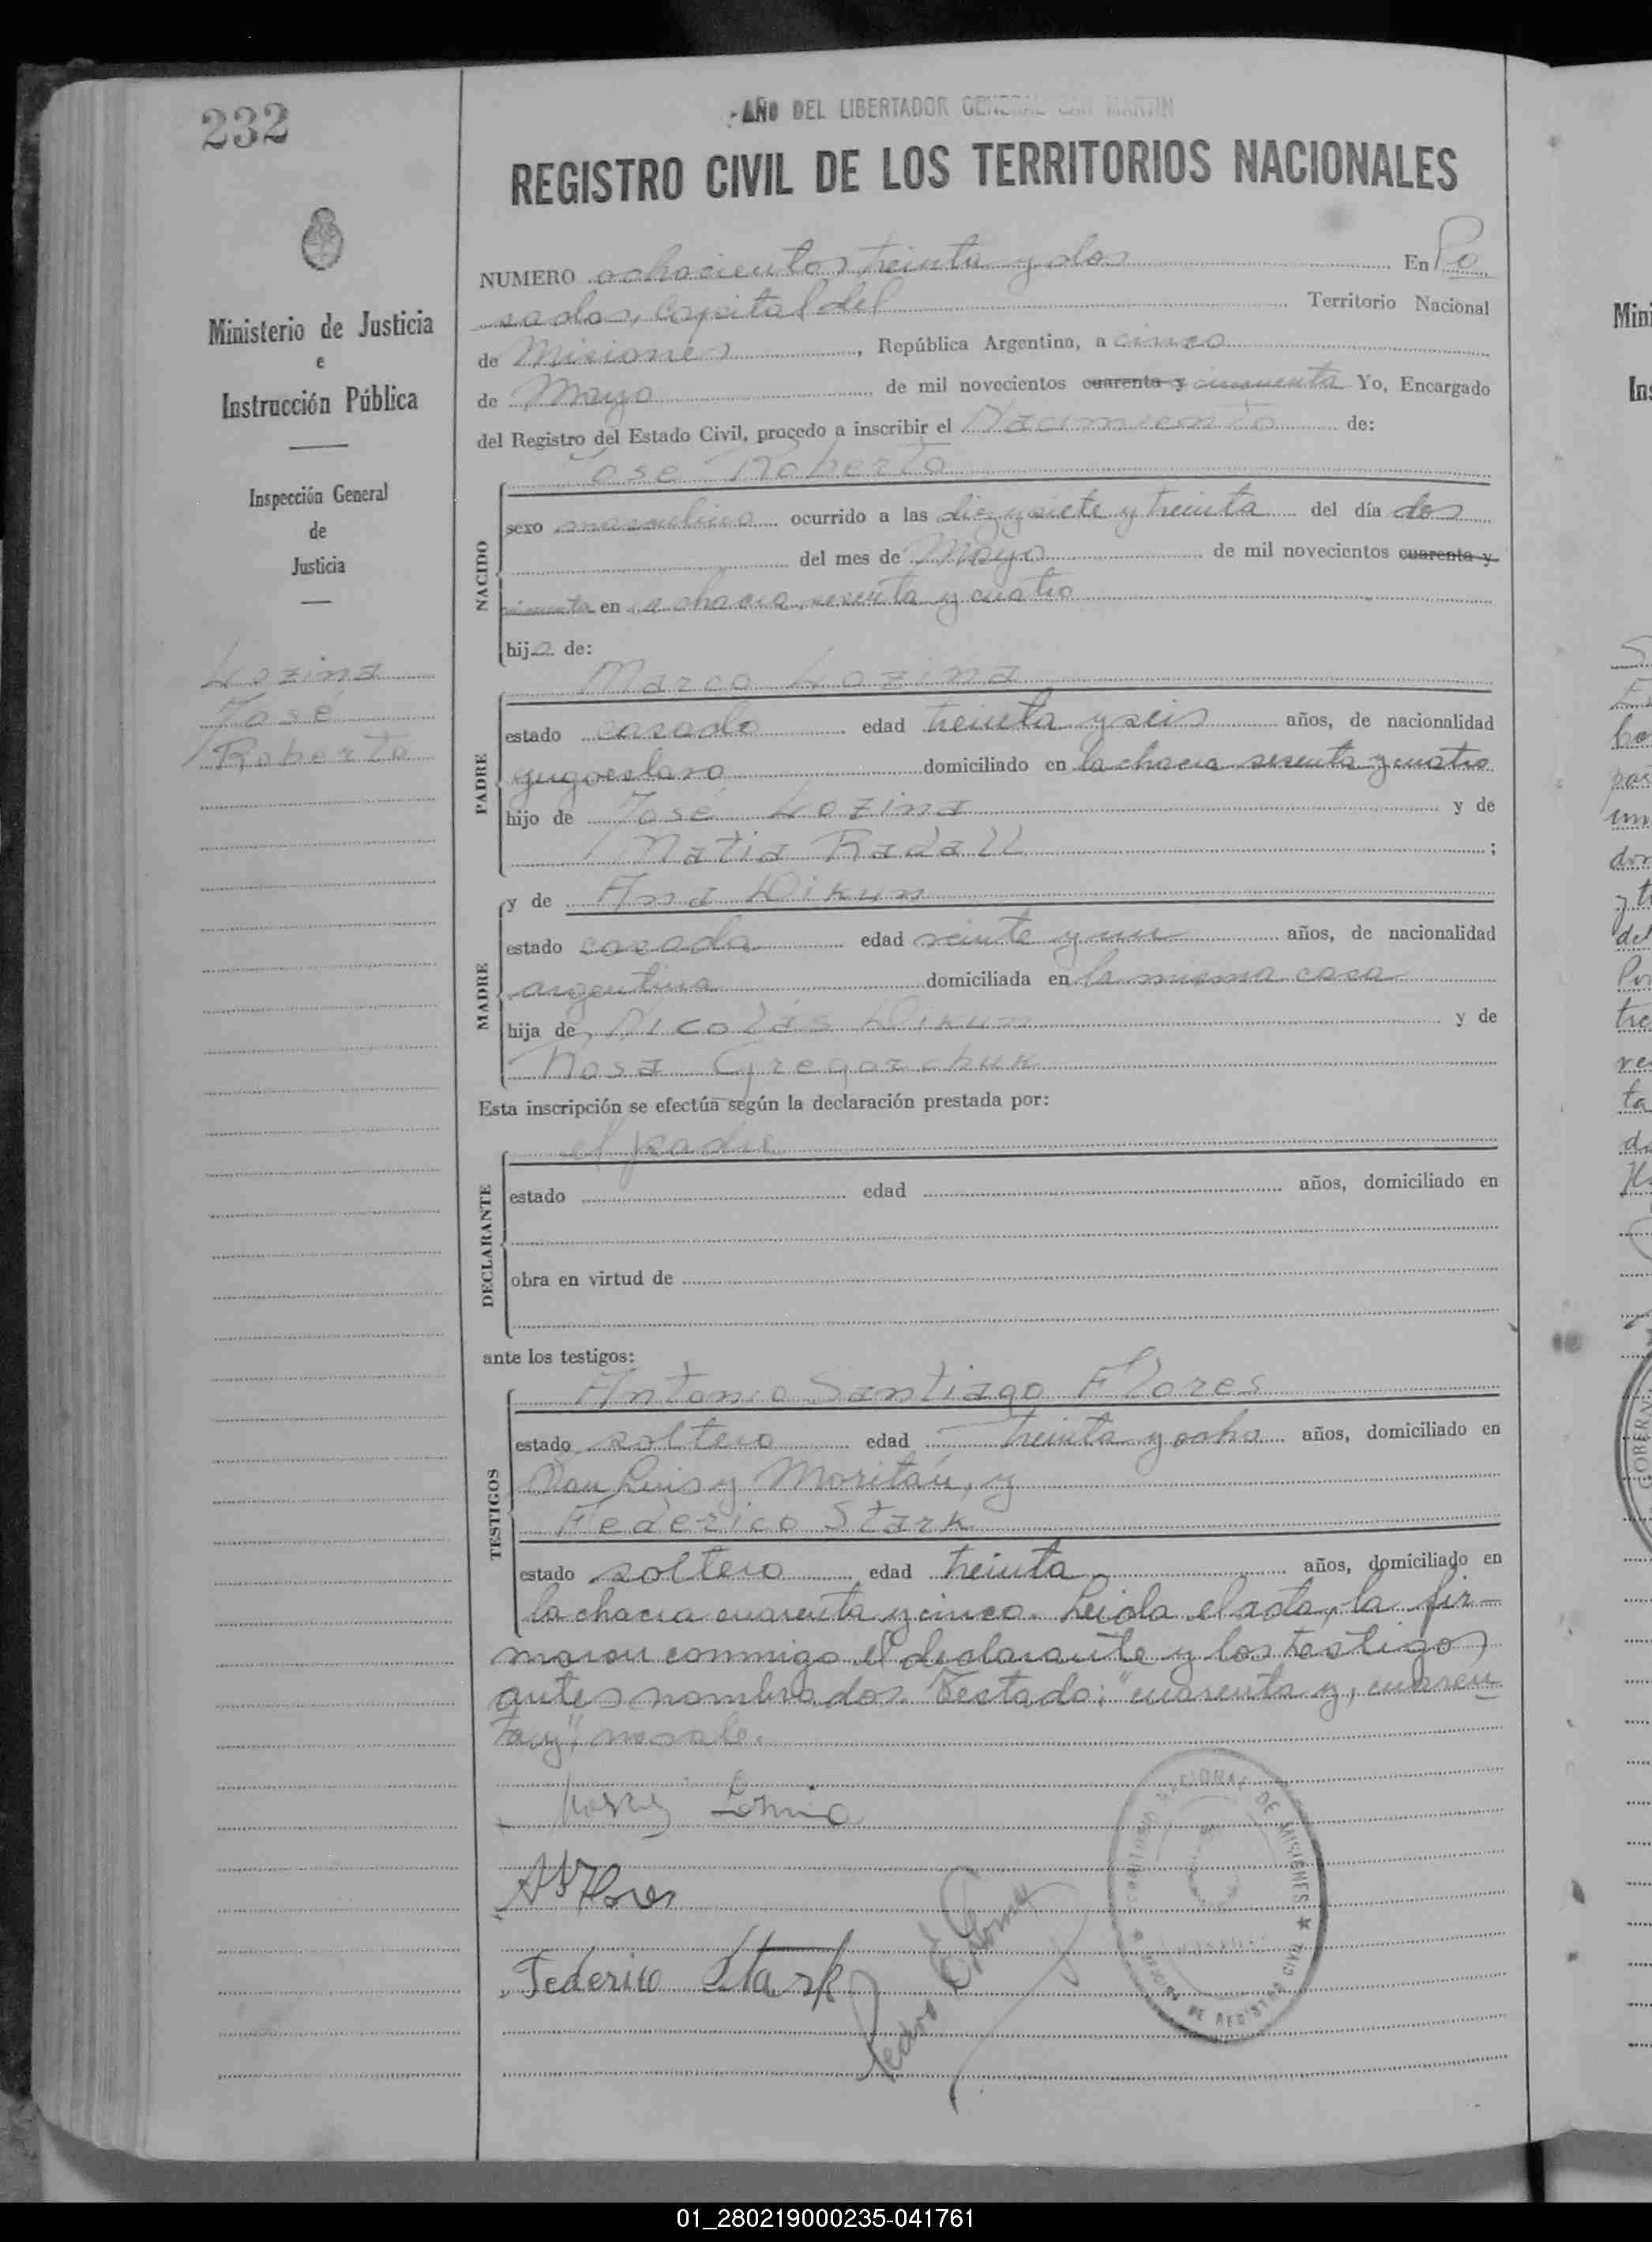 232
AÑO DEL LIBERTADOR GENERAL SAN MARTIN
REGISTRO CIVIL DE LOS TERRITORIOS NACIONALES
Ministerio de Justicia
e
Instrucción Pública
Inspección General
de
Justicia
Lozina
José
Roberto
NUMERO ochocientos treinta y dos En Po
sadas, capital del Territorio Nacional
de Misiones, República Argentina, a cinco
de Mayo de mil novecientos cuarenta y cincuenta Yo, Encargado
del Registro del Estado Civil, procedo a inscribir el Nacimiento de:
José Roberto
NACIDO
sexo masculino ocurrido a las diez y siete y treinta del día dos
del mes de Mayo de mil novecientos cuarenta y
cincuenta en la chacra sesenta y cuatro
hijo de:
Marco Lozina
PADRE
estado casado edad treinta y seis años, de nacionalidad
yugoeslavo domiciliado en la chacra sesenta y cuatro
hijo de José Lozina y de
Matia Radall ;
y de Ana Dikun
MADRE
estado casada edad veinte y un años, de nacionalidad
argentina domiciliada en la misma casa
hija de Nicolás Dikun y de
Rosa Gregorchuk
Esta inscripción se efectúa según la declaración prestada por:
el padre
DECLARANTE
estado edad años, domiciliado en
obra en virtud de
ante los testigos:
Antonio Santiago Flores
TESTIGOS
estado soltero edad treinta y ocho años, domiciliado en
San Luis y Moritán, y
Federico Stark
estado soltero edad treinta años, domiciliado en
la chacra cuarenta y cinco. Leída el acta, la fir-
maron conmigo el declarante y los testigos
antes nombrados. Testado: "cuarenta y, cuaren
ta y", no vale.
Lozina
A S Flores
Federico Stark
Pedro E. Gomez
GOBERNACION NACIONAL DE MISIONES ★ OFICINA DE REGISTRO CIVIL ★
01_280219000235-041761